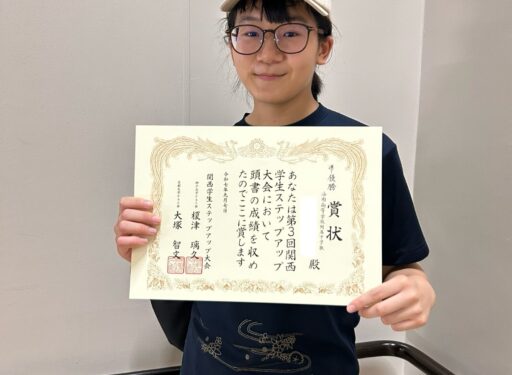 賞状
準優勝
殿
あなたは第3回関西
学生ステップアップ
大会において、
頭書の成績を収め
たのでここに賞します
令和七年九月七日
関西学生ステップアップ大会
榎津 璃久
大塚 智文